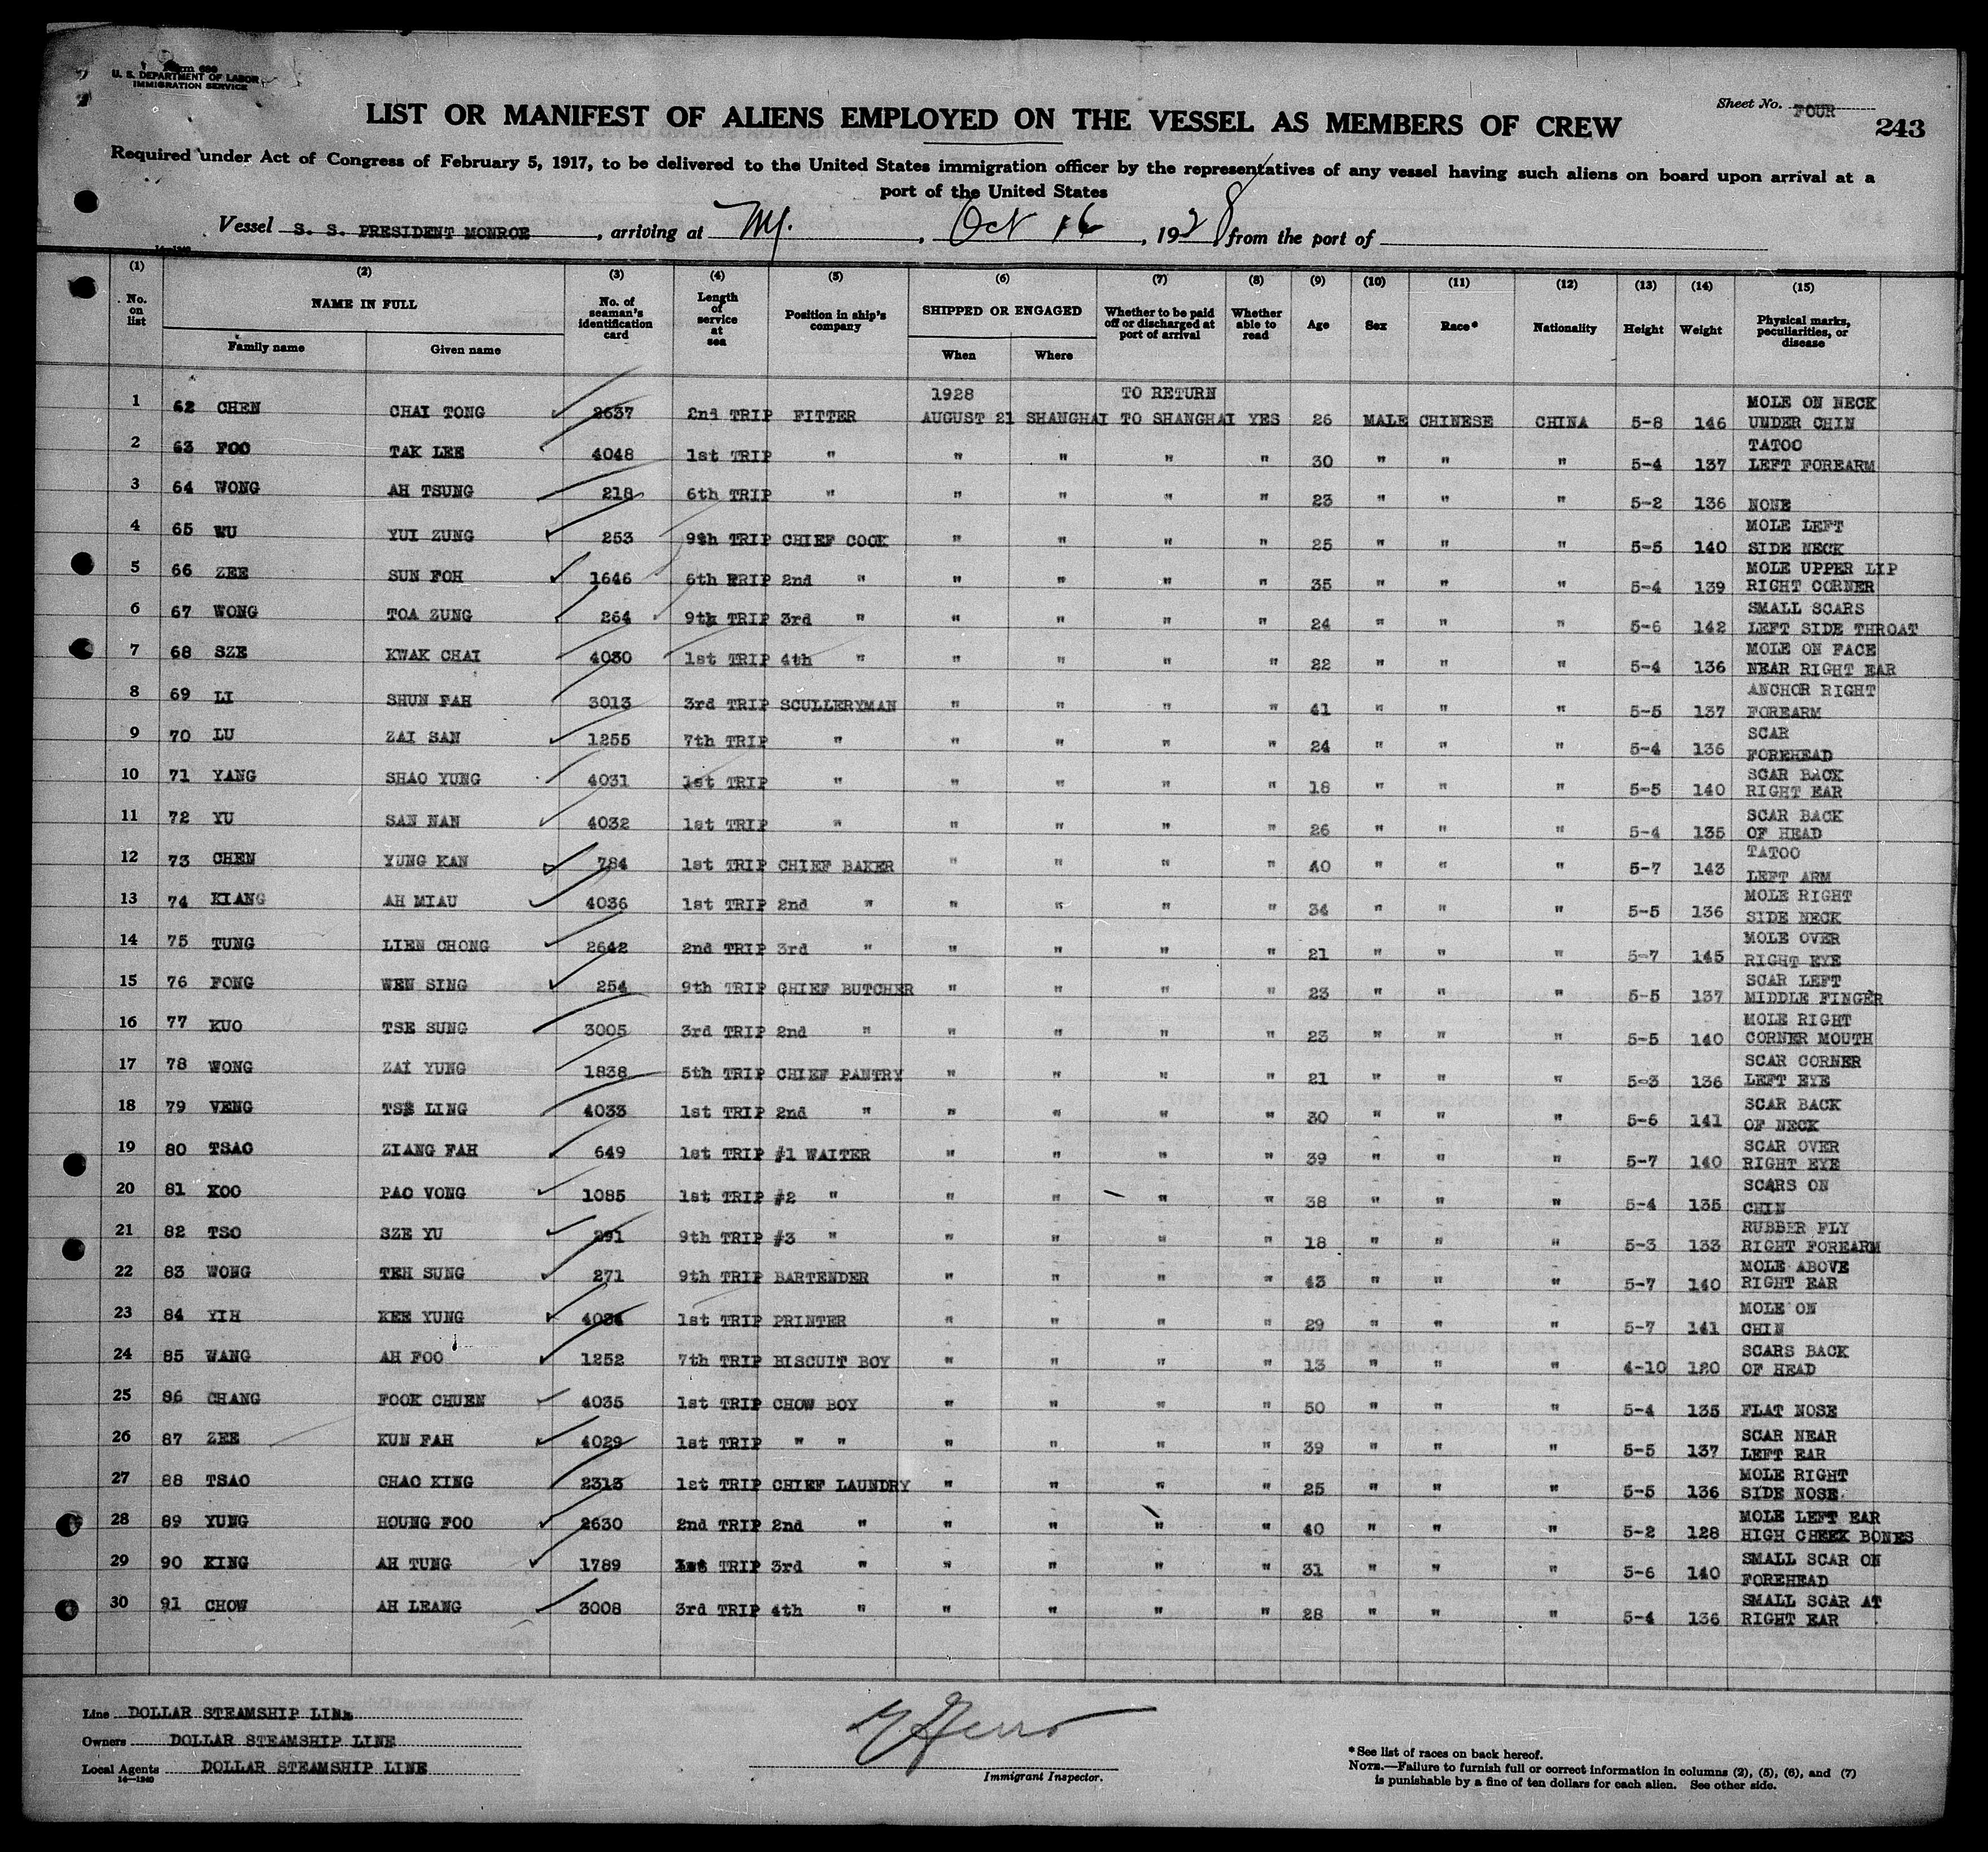 Form 689
U. S. DEPARTMENT OF LABOR
IMMIGRATION SERVICE
Sheet No. FOUR
243
LIST OR MANIFEST OF ALIENS EMPLOYED ON THE VESSEL AS MEMBERS OF CREW
Required under Act of Congress of February 5, 1917, to be delivered to the United States immigration officer by the representatives of any vessel having such aliens on board upon arrival at a
port of the United States
Vessel S. S. PRESIDENT MONROE, arriving at NY., Oct 16, 1928 from the port of
14—1240
(1) (2) (3) (4) (5) (6) (7) (8) (9) (10) (11) (12) (13) (14) (15)
No. on list NAME IN FULL No. of seaman's identification card Length of service at sea Position in ship's company SHIPPED OR ENGAGED Whether to be paid off or discharged at port of arrival Whether able to read Age Sex Race* Nationality Height Weight Physical marks, peculiarities, or disease
Family name Given name When Where
1928 TO RETURN MOLE ON NECK
1 62 CHEN CHAI TONG 2637 2nd TRIP FITTER AUGUST 21 SHANGHAI TO SHANGHAI YES 26 MALE CHINESE CHINA 5-8 146 UNDER CHIN
2 63 FOO TAK LEE 4048 1st TRIP " " " " " 30 " " " 5-4 137 TATOO LEFT FOREARM
3 64 WONG AH TSUNG 218 6th TRIP " " " " " 23 " " " 5-2 136 NONE
4 65 WU YUI ZUNG 253 9th TRIP CHIEF COOK " " " " 25 " " " 5-5 140 MOLE LEFT SIDE NECK
5 66 ZEE SUN FOH 1646 6th TRIP 2nd " " " " " 35 " " " 5-4 139 MOLE UPPER LIP RIGHT CORNER
6 67 WONG TOA ZUNG 264 9th TRIP 3rd " " " " " 24 " " " 5-6 142 SMALL SCARS LEFT SIDE THROAT
7 68 SZE KWAK CHAI 4030 1st TRIP 4th " " " " " 22 " " " 5-4 136 MOLE ON FACE NEAR RIGHT EAR
8 69 LI SHUN FAH 3013 3rd TRIP SCULLERYMAN " " " " 41 " " " 5-5 137 ANCHOR RIGHT FOREARM
9 70 LU ZAI SAN 1255 7th TRIP " " " " " 24 " " " 5-4 136 SCAR FOREHEAD
10 71 YANG SHAO YUNG 4031 1st TRIP " " " " " 18 " " " 5-5 140 SCAR BACK RIGHT EAR
11 72 YU SAN NAN 4032 1st TRIP " " " " " 26 " " " 5-4 135 SCAR BACK OF HEAD
12 73 CHEN YUNG KAN 784 1st TRIP CHIEF BAKER " " " " 40 " " " 5-7 143 TATOO LEFT ARM
13 74 KIANG AH MIAU 4036 1st TRIP 2nd " " " " " 34 " " " 5-5 136 MOLE RIGHT SIDE NECK
14 75 TUNG LIEN CHONG 2642 2nd TRIP 3rd " " " " " 21 " " " 5-7 145 MOLE OVER RIGHT EYE
15 76 FONG WEN SING 254 9th TRIP CHIEF BUTCHER " " " " 23 " " " 5-5 137 SCAR LEFT MIDDLE FINGER
16 77 KUO TSE SUNG 3005 3rd TRIP 2nd " " " " " 23 " " " 5-5 140 MOLE RIGHT CORNER MOUTH
17 78 WONG ZAI YUNG 1838 5th TRIP CHIEF PANTRY " " " " 21 " " " 5-3 136 SCAR CORNER LEFT EYE
18 79 VENG TSE LING 4033 1st TRIP 2nd " " " " " 30 " " " 5-6 141 SCAR BACK OF NECK
19 80 TSAO ZIANG FAH 649 1st TRIP #1 WAITER " " " " 39 " " " 5-7 140 SCAR OVER RIGHT EYE
20 81 KOO PAO VONG 1085 1st TRIP #2 " " " " " 38 " " " 5-4 135 SCARS ON CHIN
21 82 TSO SZE YU 291 9th TRIP #3 " " " " " 18 " " " 5-3 133 RUBBER FLY RIGHT FOREARM
22 83 WONG TEH SUNG 271 9th TRIP BARTENDER " " " " 43 " " " 5-7 140 MOLE ABOVE RIGHT EAR
23 84 YIH KEE YUNG 4034 1st TRIP PRINTER " " " " 29 " " " 5-7 141 MOLE ON CHIN
24 85 WANG AH FOO 1252 7th TRIP BISCUIT BOY " " " " 13 " " " 4-10 120 SCARS BACK OF HEAD
25 86 CHANG FOOK CHUEN 4035 1st TRIP CHOW BOY " " " " 50 " " " 5-4 135 FLAT NOSE
26 87 ZEE KUN FAH 4029 1st TRIP " " " " " " 39 " " " 5-5 137 SCAR NEAR LEFT EAR
27 88 TSAO CHAO KING 2313 1st TRIP CHIEF LAUNDRY " " " " 25 " " " 5-5 136 MOLE RIGHT SIDE NOSE.
28 89 YUNG HOUNG FOO 2630 2nd TRIP 2nd " " " " " 40 " " " 5-2 128 MOLE LEFT EAR HIGH CHEEK BONES
29 90 KING AH TUNG 1789 1st TRIP 3rd " " " " " 31 " " " 5-6 140 SMALL SCAR ON FOREHEAD
30 91 CHOW AH LEANG 3008 3rd TRIP 4th " " " " " 28 " " " 5-4 136 SMALL SCAR AT RIGHT EAR
Line DOLLAR STEAMSHIP LINE
Owners DOLLAR STEAMSHIP LINE
Local Agents DOLLAR STEAMSHIP LINE
14—1240
Immigrant Inspector.
*See list of races on back hereof.
NOTE.—Failure to furnish full or correct information in columns (2), (5), (6), and (7)
is punishable by a fine of ten dollars for each alien. See other side.